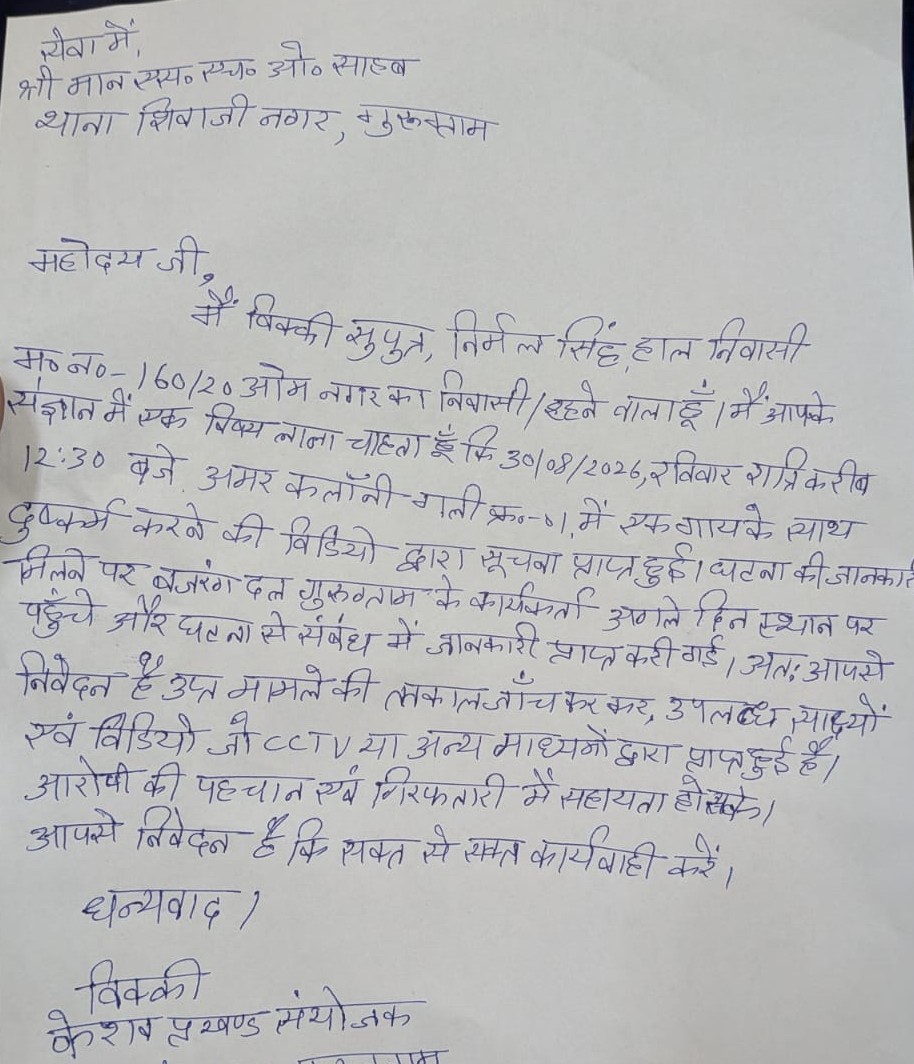 सेवा में,
श्री मान एस० एच० ओ० साहब
थाना शिवाजी नगर, गुरूग्राम
महोदय जी,
मैं विक्की सुपुत्र, निर्मल सिंह, हाल निवासी
म० न० - 160/20 ओम नगर का निवासी / रहने वाला हूँ। मैं आपके
संज्ञान में एक विषय लाना चाहता हूँ कि 30/08/2026, रविवार रात्रि करीब
12:30 बजे अमर कलॉनी गली क्र०-01, में एक गाय के साथ
दुष्कर्म करने की विडियो द्वारा सूचना प्राप्त हुई। घटना की जानकारी
मिलने पर बजरंग दल गुरुग्राम के कार्यकर्ता अगले दिन स्थान पर
पहुँचे और घटना से संबंध में जानकारी प्राप्त करी गई। अतः आपसे
निवेदन है उप्त मामले की त्तकाल जाँच कर कर, उपलब्ध साक्ष्यों
एवं विडियो जो CCTV या अन्य माध्यमों द्वारा प्राप्त हुई है।
आरोपी की पहचान एवं गिरफतारी में सहायता हो सके।
आपसे निवेदन है कि सक्त से सक्त कार्यवाही करें।
धन्यवाद।
विक्की
केशव प्रखण्ड संयोजक